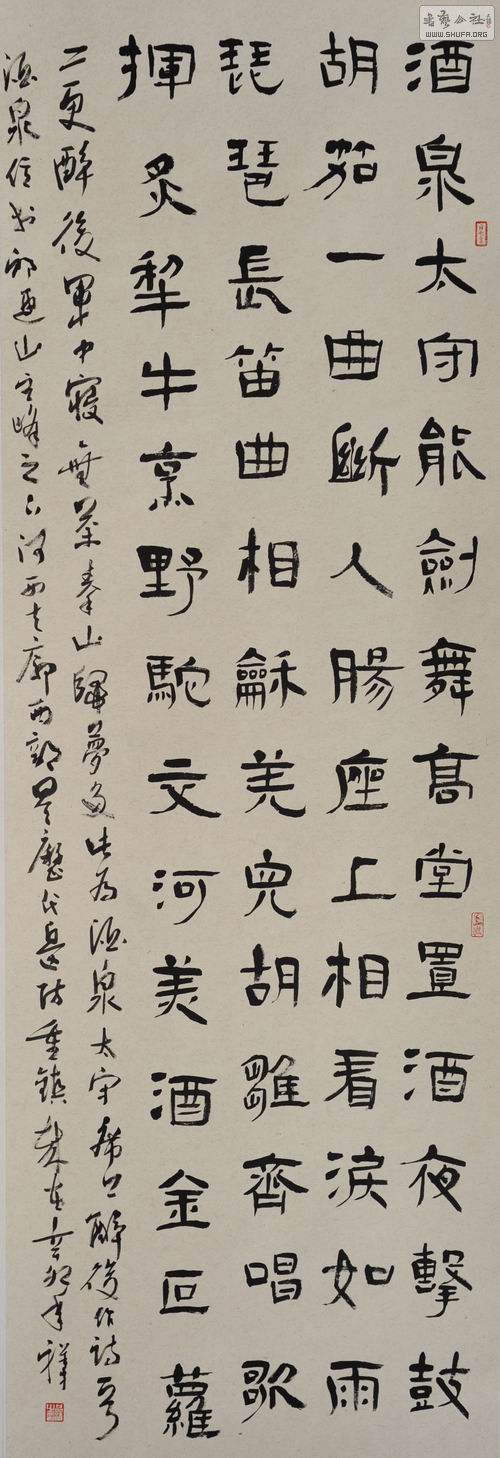 酒泉太守能劍舞高堂置酒夜擊鼓
胡笳一曲斷人腸座上相看淚如雨
琵琶長笛曲相龢羌兒胡雛齊唱歌
揮炙犁牛烹野駝交河美酒金叵蘿
二更醉後軍中寢無奈秦山歸夢多此為酒泉太守席上醉後作詩一首
酒泉位於祁連山主峰之下河西走廊西部是歷代邊防重鎮
書藝公社
WWW.SHUFA.ORG